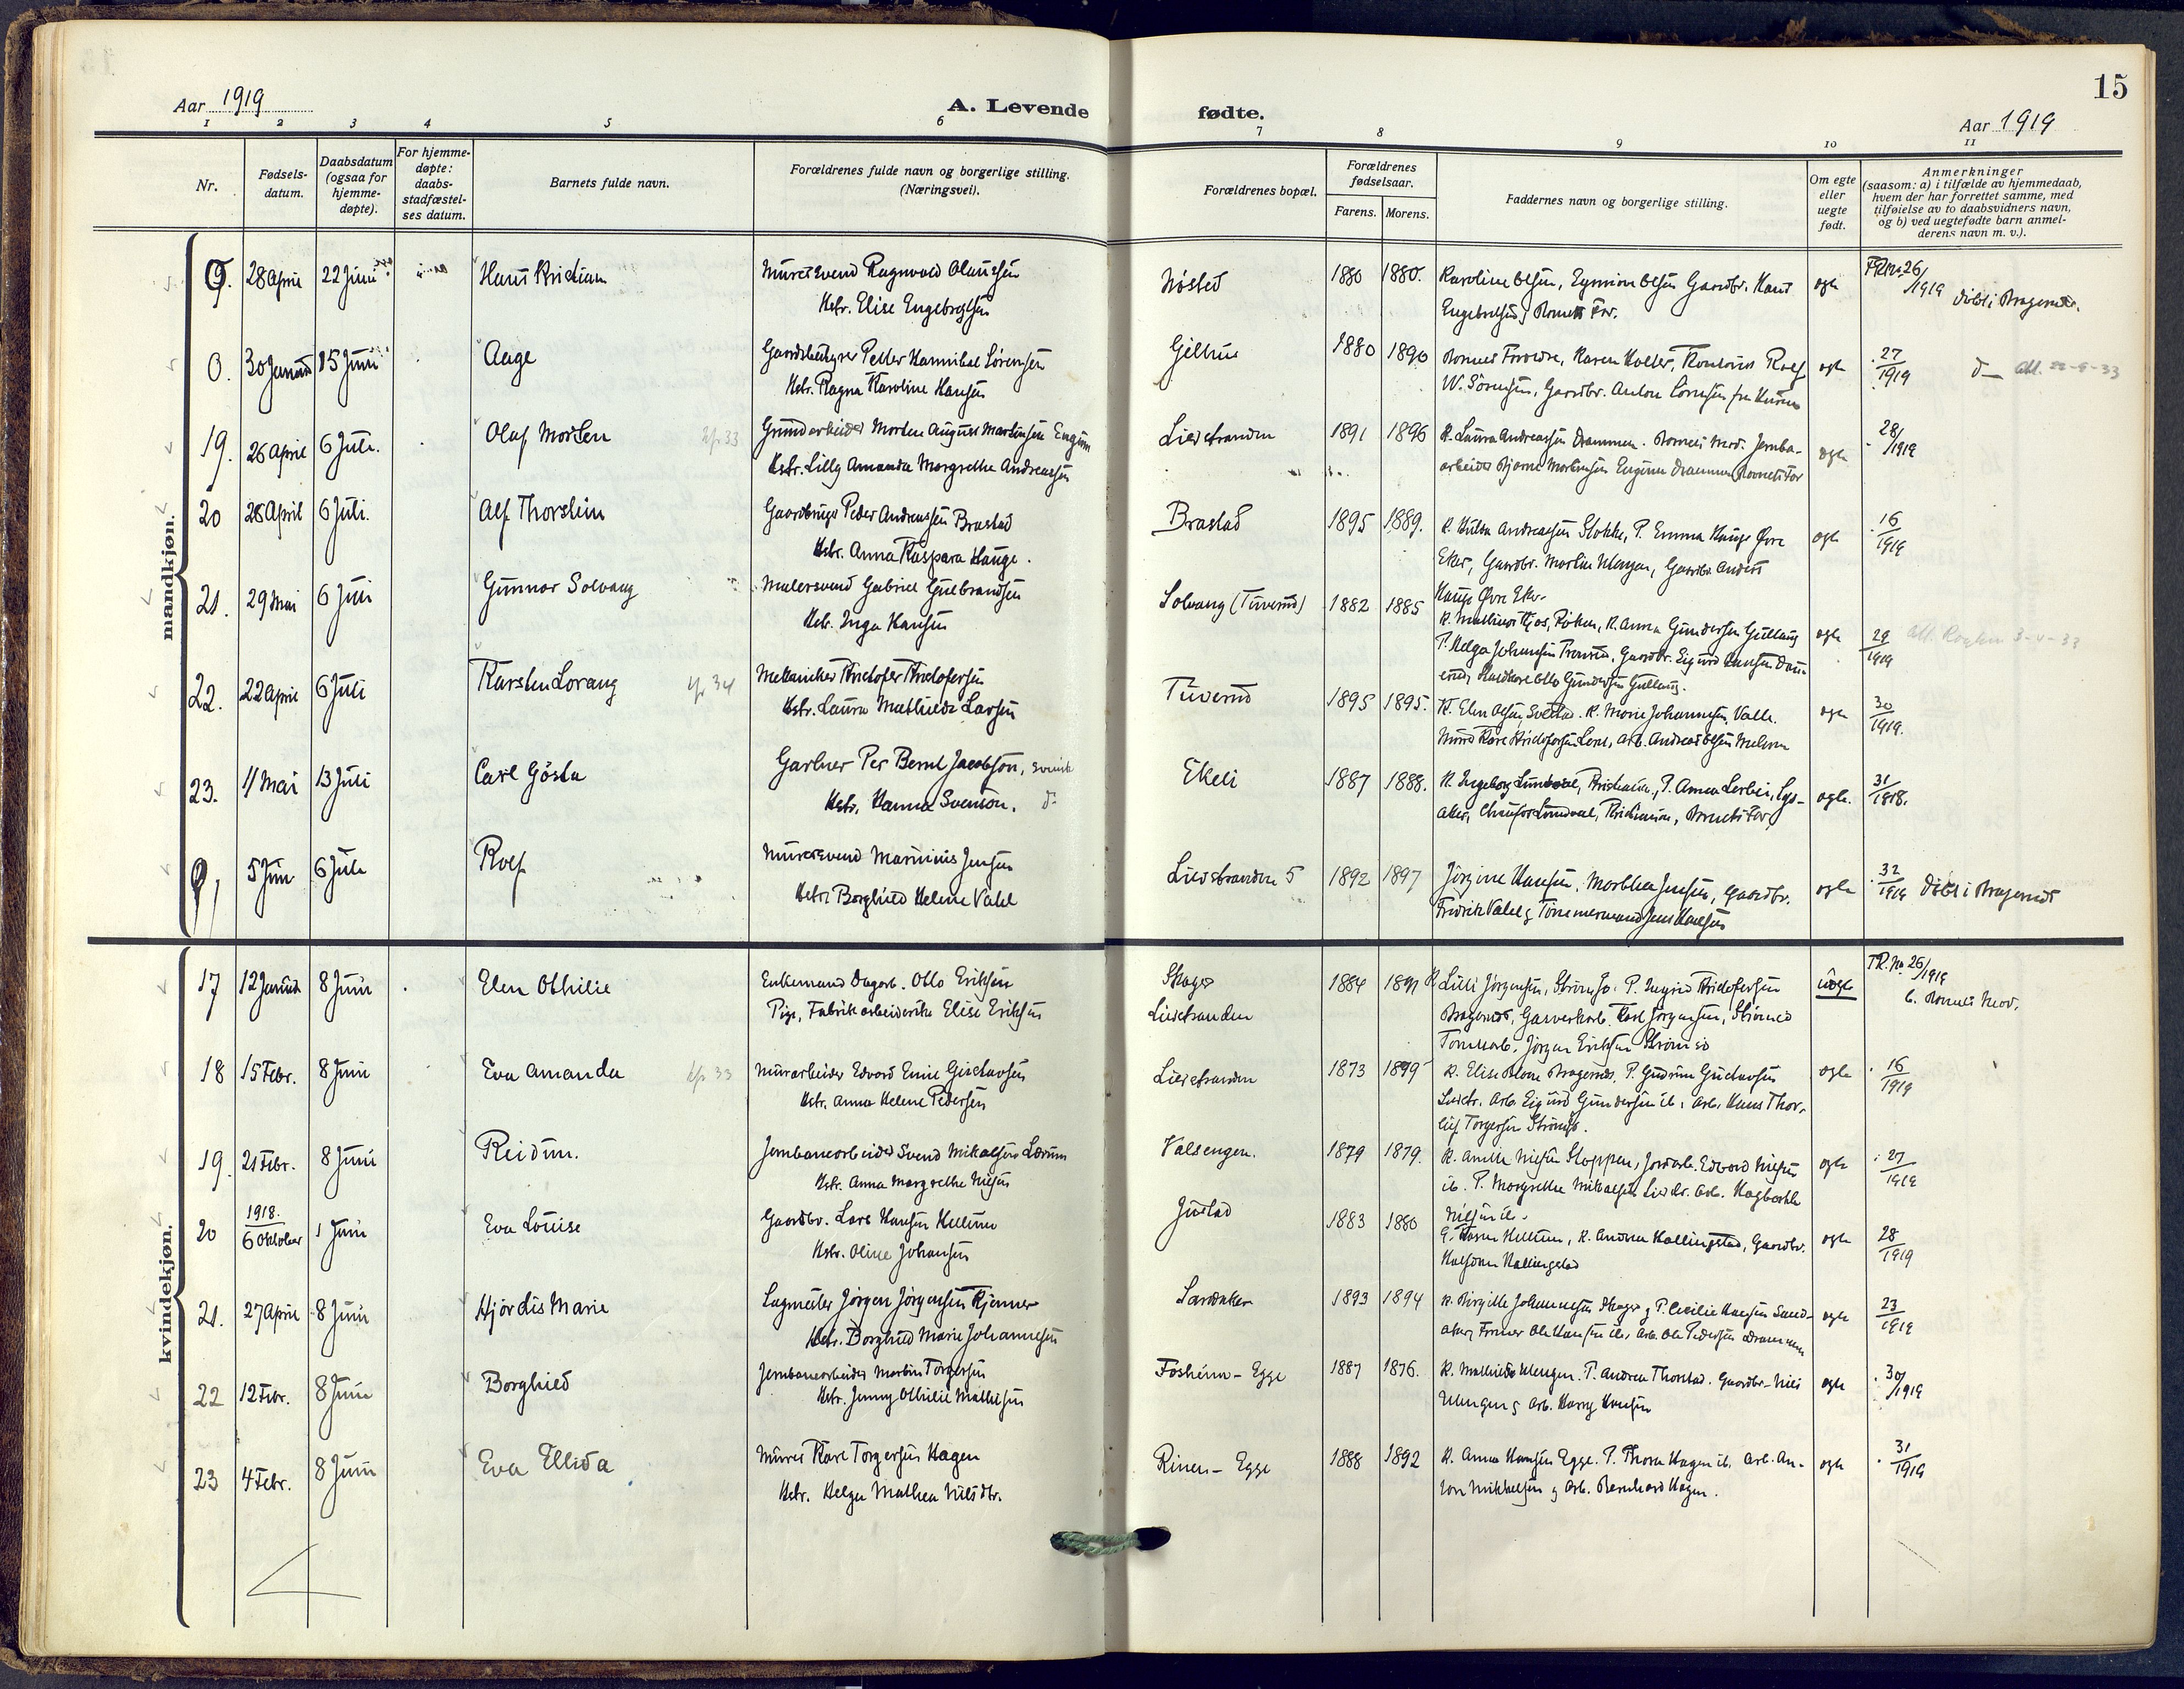 15
Aar 1919
A. Levende fødte.
Aar 1919
1 2 3 4 5 6 7 8 9 10 11
Nr.
Fødsels-
datum.
Daabsdatum
(ogsaa for
hjemme-
døpte).
For hjemme-
døpte:
daabs-
stadfæstel-
ses datum.
Barnets fulde navn.
Forældrenes fulde navn og borgerlige stilling.
(Næringsvei).
Forældrenes bopæl.
Forældrenes
fødselsaar.
Farens. Morens.
Faddernes navn og borgerlige stilling.
Om egte
eller
uegte
født.
Anmerkninger
(saasom: a) i tilfælde av hjemmedaab,
hvem der har forrettet samme, med
tilføielse av to daabsvidners navn,
og b) ved uegtefødte barn anmel-
derens navn m. v.).
mandkjøn.
0. 28 April 22 Juni Hans Kristian
Murersvend Ragnvald Olaussen
Hstr. Elise Engebretsen
1880 1880.
egte
26/1919 døbt i Bragernes.
0. 30 Januar 15 Juni Aage
Gaardbruger Petter Hannibal Sørensen
Hstr. Ragna Karoline Hansen
Gilhus 1880 1890
W. Sørensen, Gaardbr. Anton Sørensen
egte 27/1919
19. 26 April 6 Juli. Olaf Morten
Grundarbeider Morten August Martinsen Engum
Hstr. Lilly Amanda Margrethe Andreassen
Lierstranden 1891 1896
K. Laura Andreassen Drammen. Barnets Mod. Jernba-
arbeider Bjarne Martinsen Engum Drammen, Barnets Far
egte 28/1919
20 28 April 6 Juli. Alf Thorstein
Gaardbruger Peder Andreassen Brastad
Hstr. Anna Kaspara Hauge.
Brastad 1895 1889.
K. Hulda Andreassen Stokke, P. Emma Hauge Øvre
Eker, Gaardbr. Martin Klengen, Gaardbr. Anders
Hauge Øvre Eker
egte 16/1919
21. 29 Mai 6 Juli Gunnar Solvang
Malersvend Gabriel Gulbrandsen
Hstr. Inga Hansen
Solvang (Tuverud) 1882 1885
K. Anna Gundersen Gullaug
egte 29/1919
22. 22 April 6 Juli Karsten Lorang
Mekaniker Kristofer Kristofersen
Hstr. Laura Mathilde Larsen
Tuverud 1895 1895.
K. Marie Johannesen, Valle.
egte 30/1919.
23. 11 Mai 13 Juli Carl Gösta
Gartner Per Bernt Jacobson, svensk
Hstr. Hanna Svenson. do
Ekeli 1887 1888.
K. Ingeborg Lundvall, Kristiania,
egte. 31/1918.
5 Juni 6 Juli Rolf
Murersvend Marinius Jensen
Hstr. Borghild Helene Vahl
Lierstranden 5 1892 1897
Jørgine Hansen, Marthea Jensen, Gaardbr.
Fredrik Vahl & Tømmermand Jens Hansen
egte 32/1919 døbt i Bragernes
kvindekjøn.
17 12 Januar 8 Juni Elen Othilie
Enkemand Dagarb. Otto Eriksen
Pige, Fabrikarbeiderske Elise Eriksen
Skoger
Lierstranden
1884
K. Lilli Jørgensen, Strømsø. P. Ingrid Kristofersen
Bragernes, Garveriarb. Karl Jørgensen, Strømsø
Jørgen Eriksen Strømsø
uegte
26/1919
b. Barnets Mor.
18 15 Febr. 8 Juni Eva Amanda
Murarbeider Edvard Emil Gustavsen
Hstr. Anna Helene Pedersen
Lierstranden 1873 1899
P. Gudrun Gustavsen
Lierstr. Arb. Sigurd Gundersen ib. Arb. Hans Thor-
leif Torgersen Strømsø.
egte 16/1919
19. 21 Febr. 8 Juni Reidun.
Jernbanearbeider Svend Mikaelsen Lærum
Hstr. Anna Margrethe Nilsen
Valsengen. 1879 1879.
K. Amilie Nielsen Stoppen, Jordarb. Edvard Nielsen
ib. P. Margrethe Mikaelsen Lierstr. Arb. Hagbarth
Nielsen ib.
egte 27/1919
20 1918. 6 Oktober 1 Juni Eva Louise
Gaardbr. Lars Hansen Hellum
Hstr. Oline Johansen
Justad 1883 1880
K. Andrea Kallingstad, Gaardbr.
Halfdan Kallingstad
egte 28/1919
21. 27 April 8 Juni Hjørdis Marie
Lagmester Jørgen Jørgensen Kjenner
Hstr. Borghild Marie Johannesen
Landaker 1893 1894
K. Birgitte Johannesen Skoger & P. Cecilie Hansen Land-
aker, Former Ole Hansen ib, Arb. Ole Pedersen Drammen
egte 23/1919
22 12 Febr. 8 Juni Borghild
Jernbanearbeider Martin Torgersen
Hstr. Jenny Othilie Mathisen
Fosheim - Egge 1887 1876.
K. Mathilde Klengen. P. Andrea Thorstad. Gaardbr. Nils
Klengen & Arb. Harry Hansen
egte 30/1919
23 4 Febr. 8 Juni Eva Ellida
Murer Karl Torgersen Hagen
Hstr. Helga Mathea Nilsdtr.
Rinen - Egge 1888 1892
K. Anna Hansen Egge. P. Thora Hagen ib. Arb. An-
ton Mikkelsen & Arb. Bernhard Hagen.
egte 31/1919